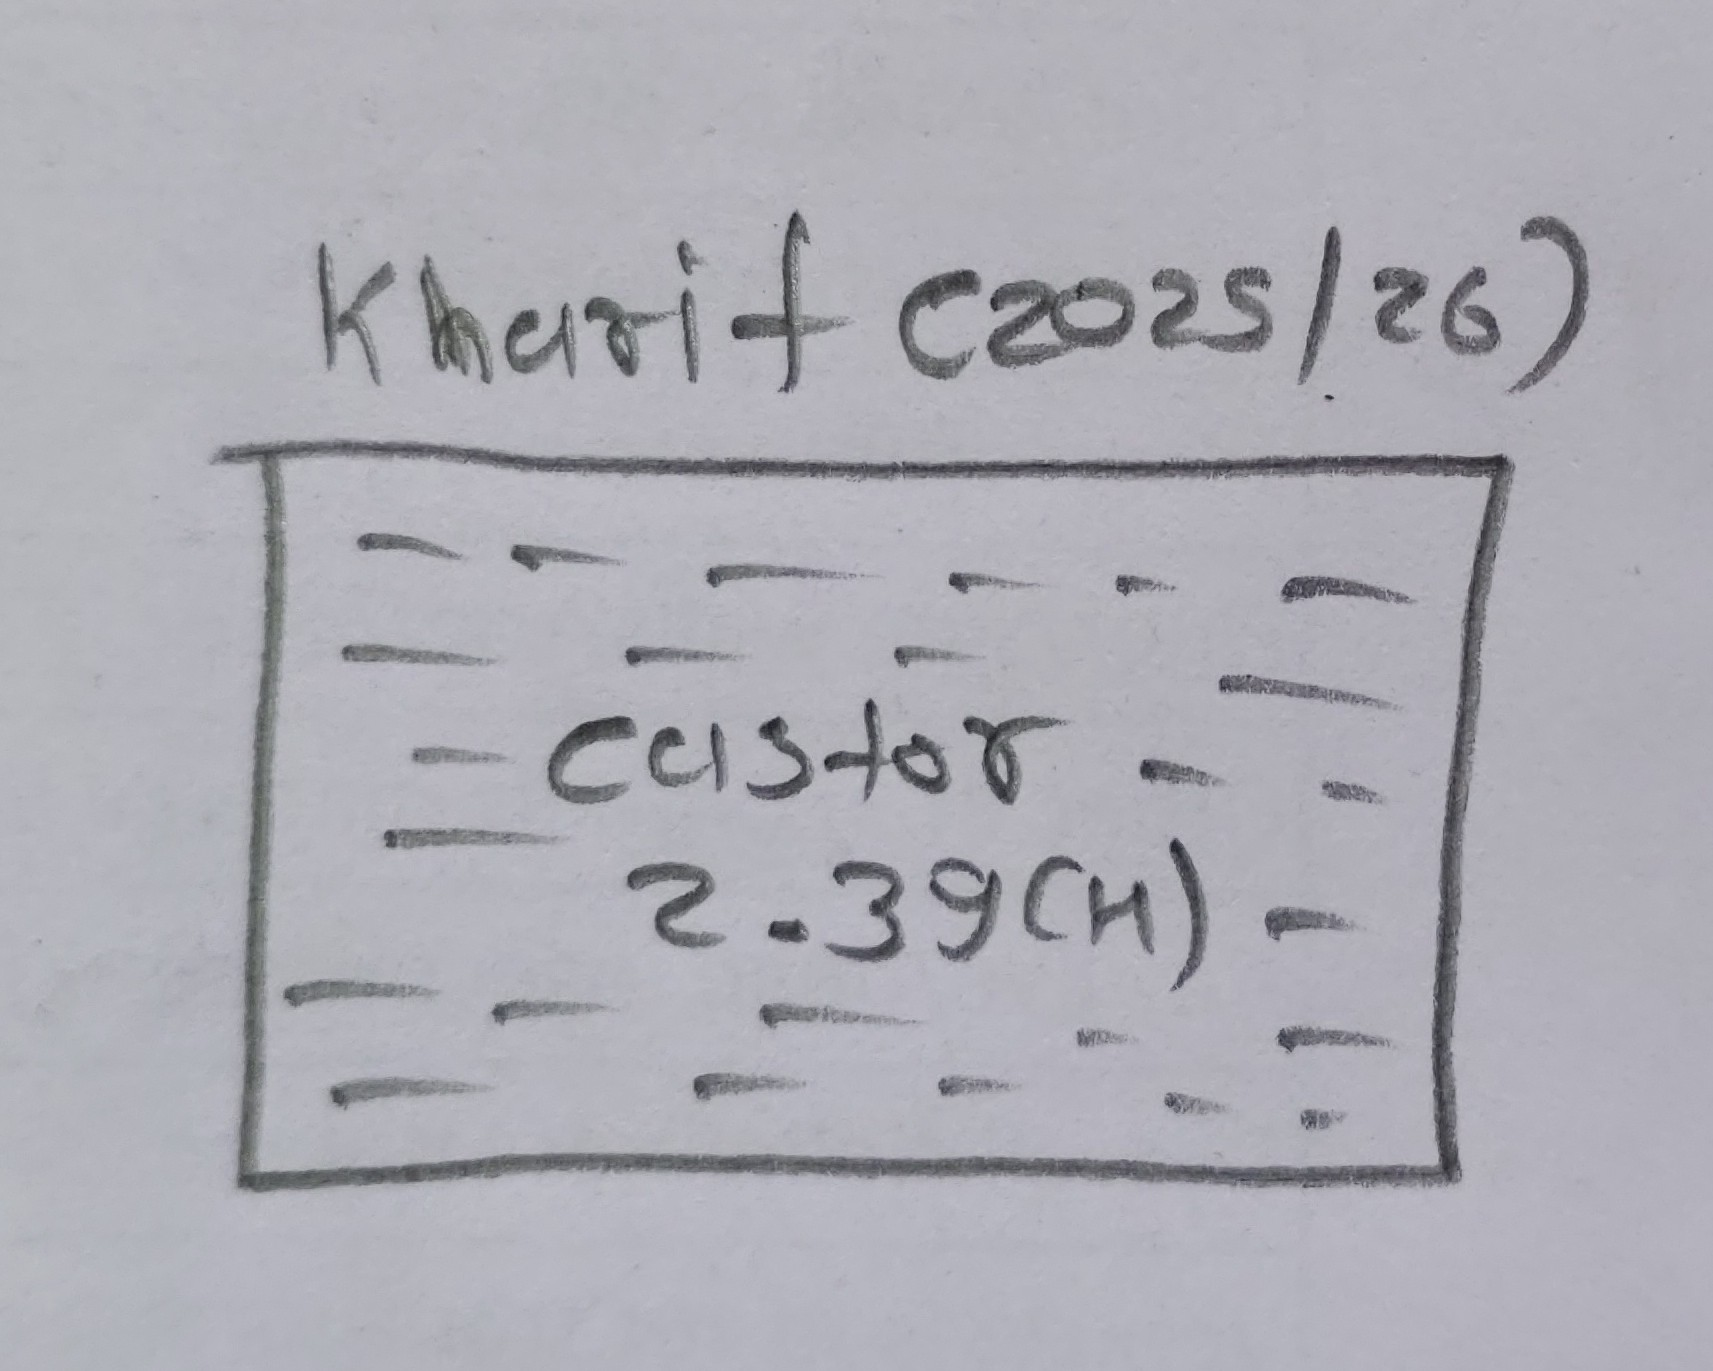 Kharif (2025/26)
Castor
2.39(H)